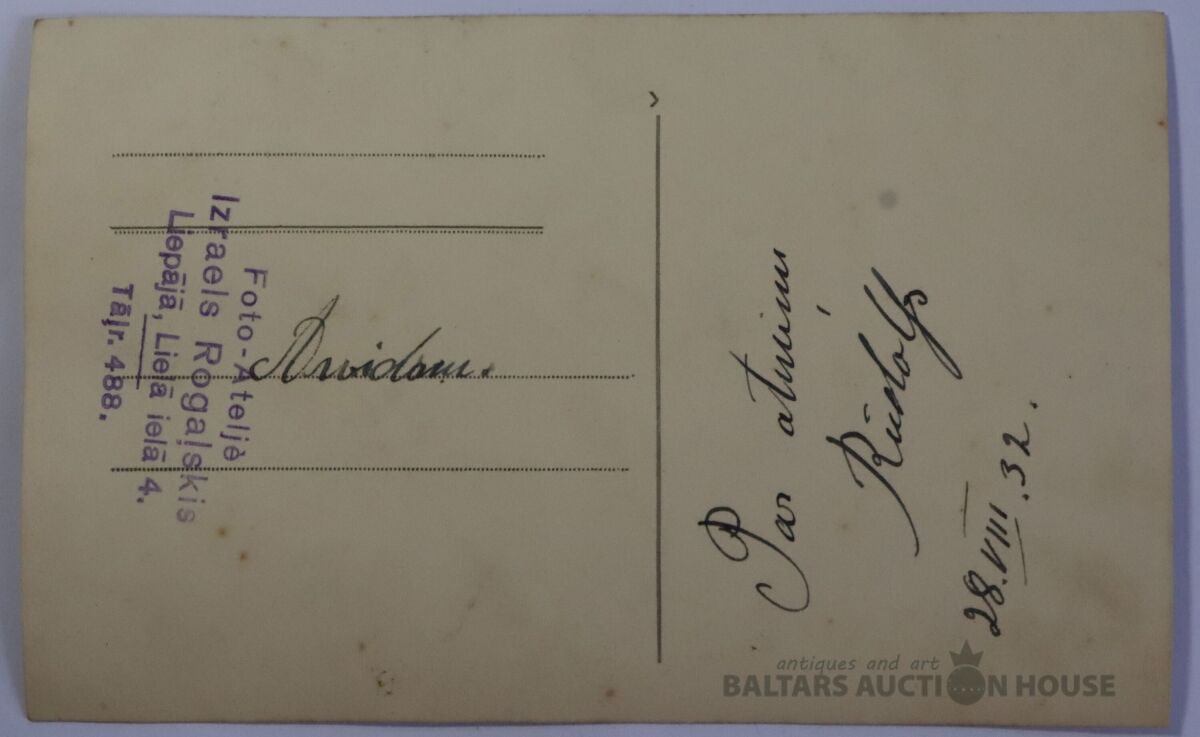 Foto-Ateljè
Izraels Rogaļskis
Liepājā, Lielā ielā 4.
Tāļr. 488.
Arvidam.
Par atmiņu
Rūdolfs
28.VIII.32.
antiques and art
BALTARS AUCTION HOUSE